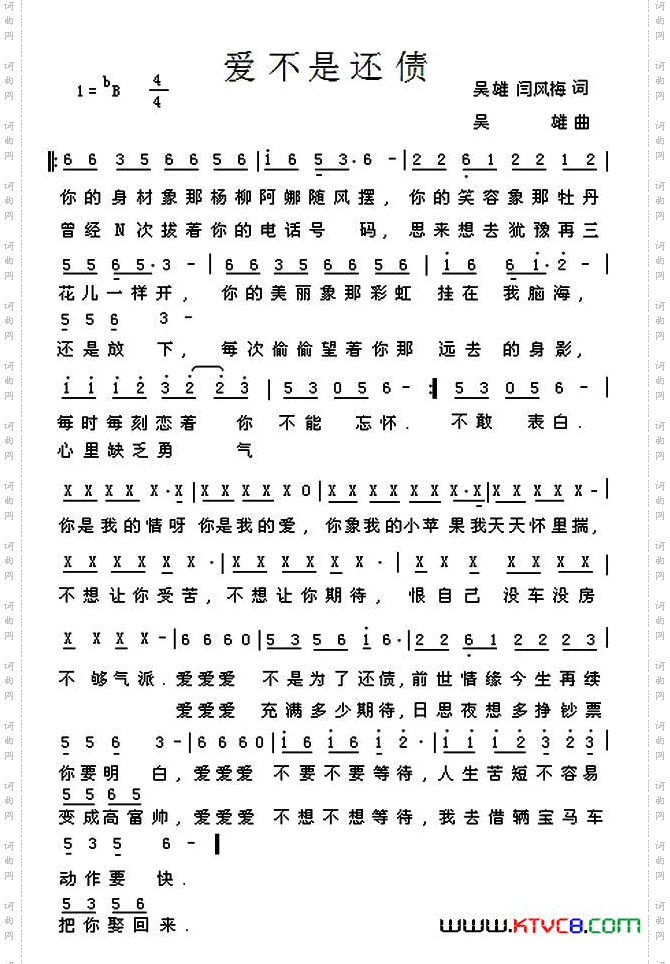 爱不是还债
1=ᵇB 4/4
吴雄 闫风梅 词
吴 雄 曲
6 6 3 5 6 6 5 6 | i 6 5 3· 6 - | 2 2 6 1 2 2 1 2 |
你的身材象那杨柳阿娜随风摆，你的笑容象那牡丹
曾经N次拔着你的电话号 码，思来想去犹豫再三
5 5 6 5· 3 - | 6 6 3 5 6 6 5 6 | 6 6 6 1· 2 - |
花儿一样开，你的美丽象那彩虹 挂在 我脑海，
5 5 6 3 -
还是放 下，每次偷偷望着你那 远去 的身影，
i i i 2 3 2 2 3 | 5 3 0 5 6 - :| 5 3 0 5 6 -
每时每刻恋着 你 不能 忘怀. 不敢 表白.
心里缺乏勇 气
X X X X X·X | X X X X X 0 | X X X X X X X·X | X X X X X -|
你是我的情呀 你是我的爱，你象我的小苹 果我天天怀里揣，
X X X X X X· | X X X X X X· | X X X X X X X |
不想让你受苦，不想让你期待，恨自己 没车没房
X X X X - | 6 6 6 0 | 5 3 5 6 i 6· | 2 2 6 1 2 2 3 |
不 够气派.爱爱爱 不是为了还债,前世情缘今生再续
爱爱爱 充满多少期待,日思夜想多挣钞票
5 5 6 3 - | 6 6 6 0 | i 6 i 6 i 2· | i i i 2 3 2 3 |
你要明 白,爱爱爱 不要不要等待，人生苦短不容易
5 5 6 5
变成高富帅，爱爱爱 不想不想等待，我去借辆宝马车
5 3 5 6 - |
动作要 快.
5 3 5 6
把你娶回来.
www.KTVC8.com
词曲网 词曲网 词曲网 词曲网 词曲网 词曲网 词曲网 词曲网
词曲网 词曲网 词曲网 词曲网 词曲网 词曲网 词曲网 词曲网